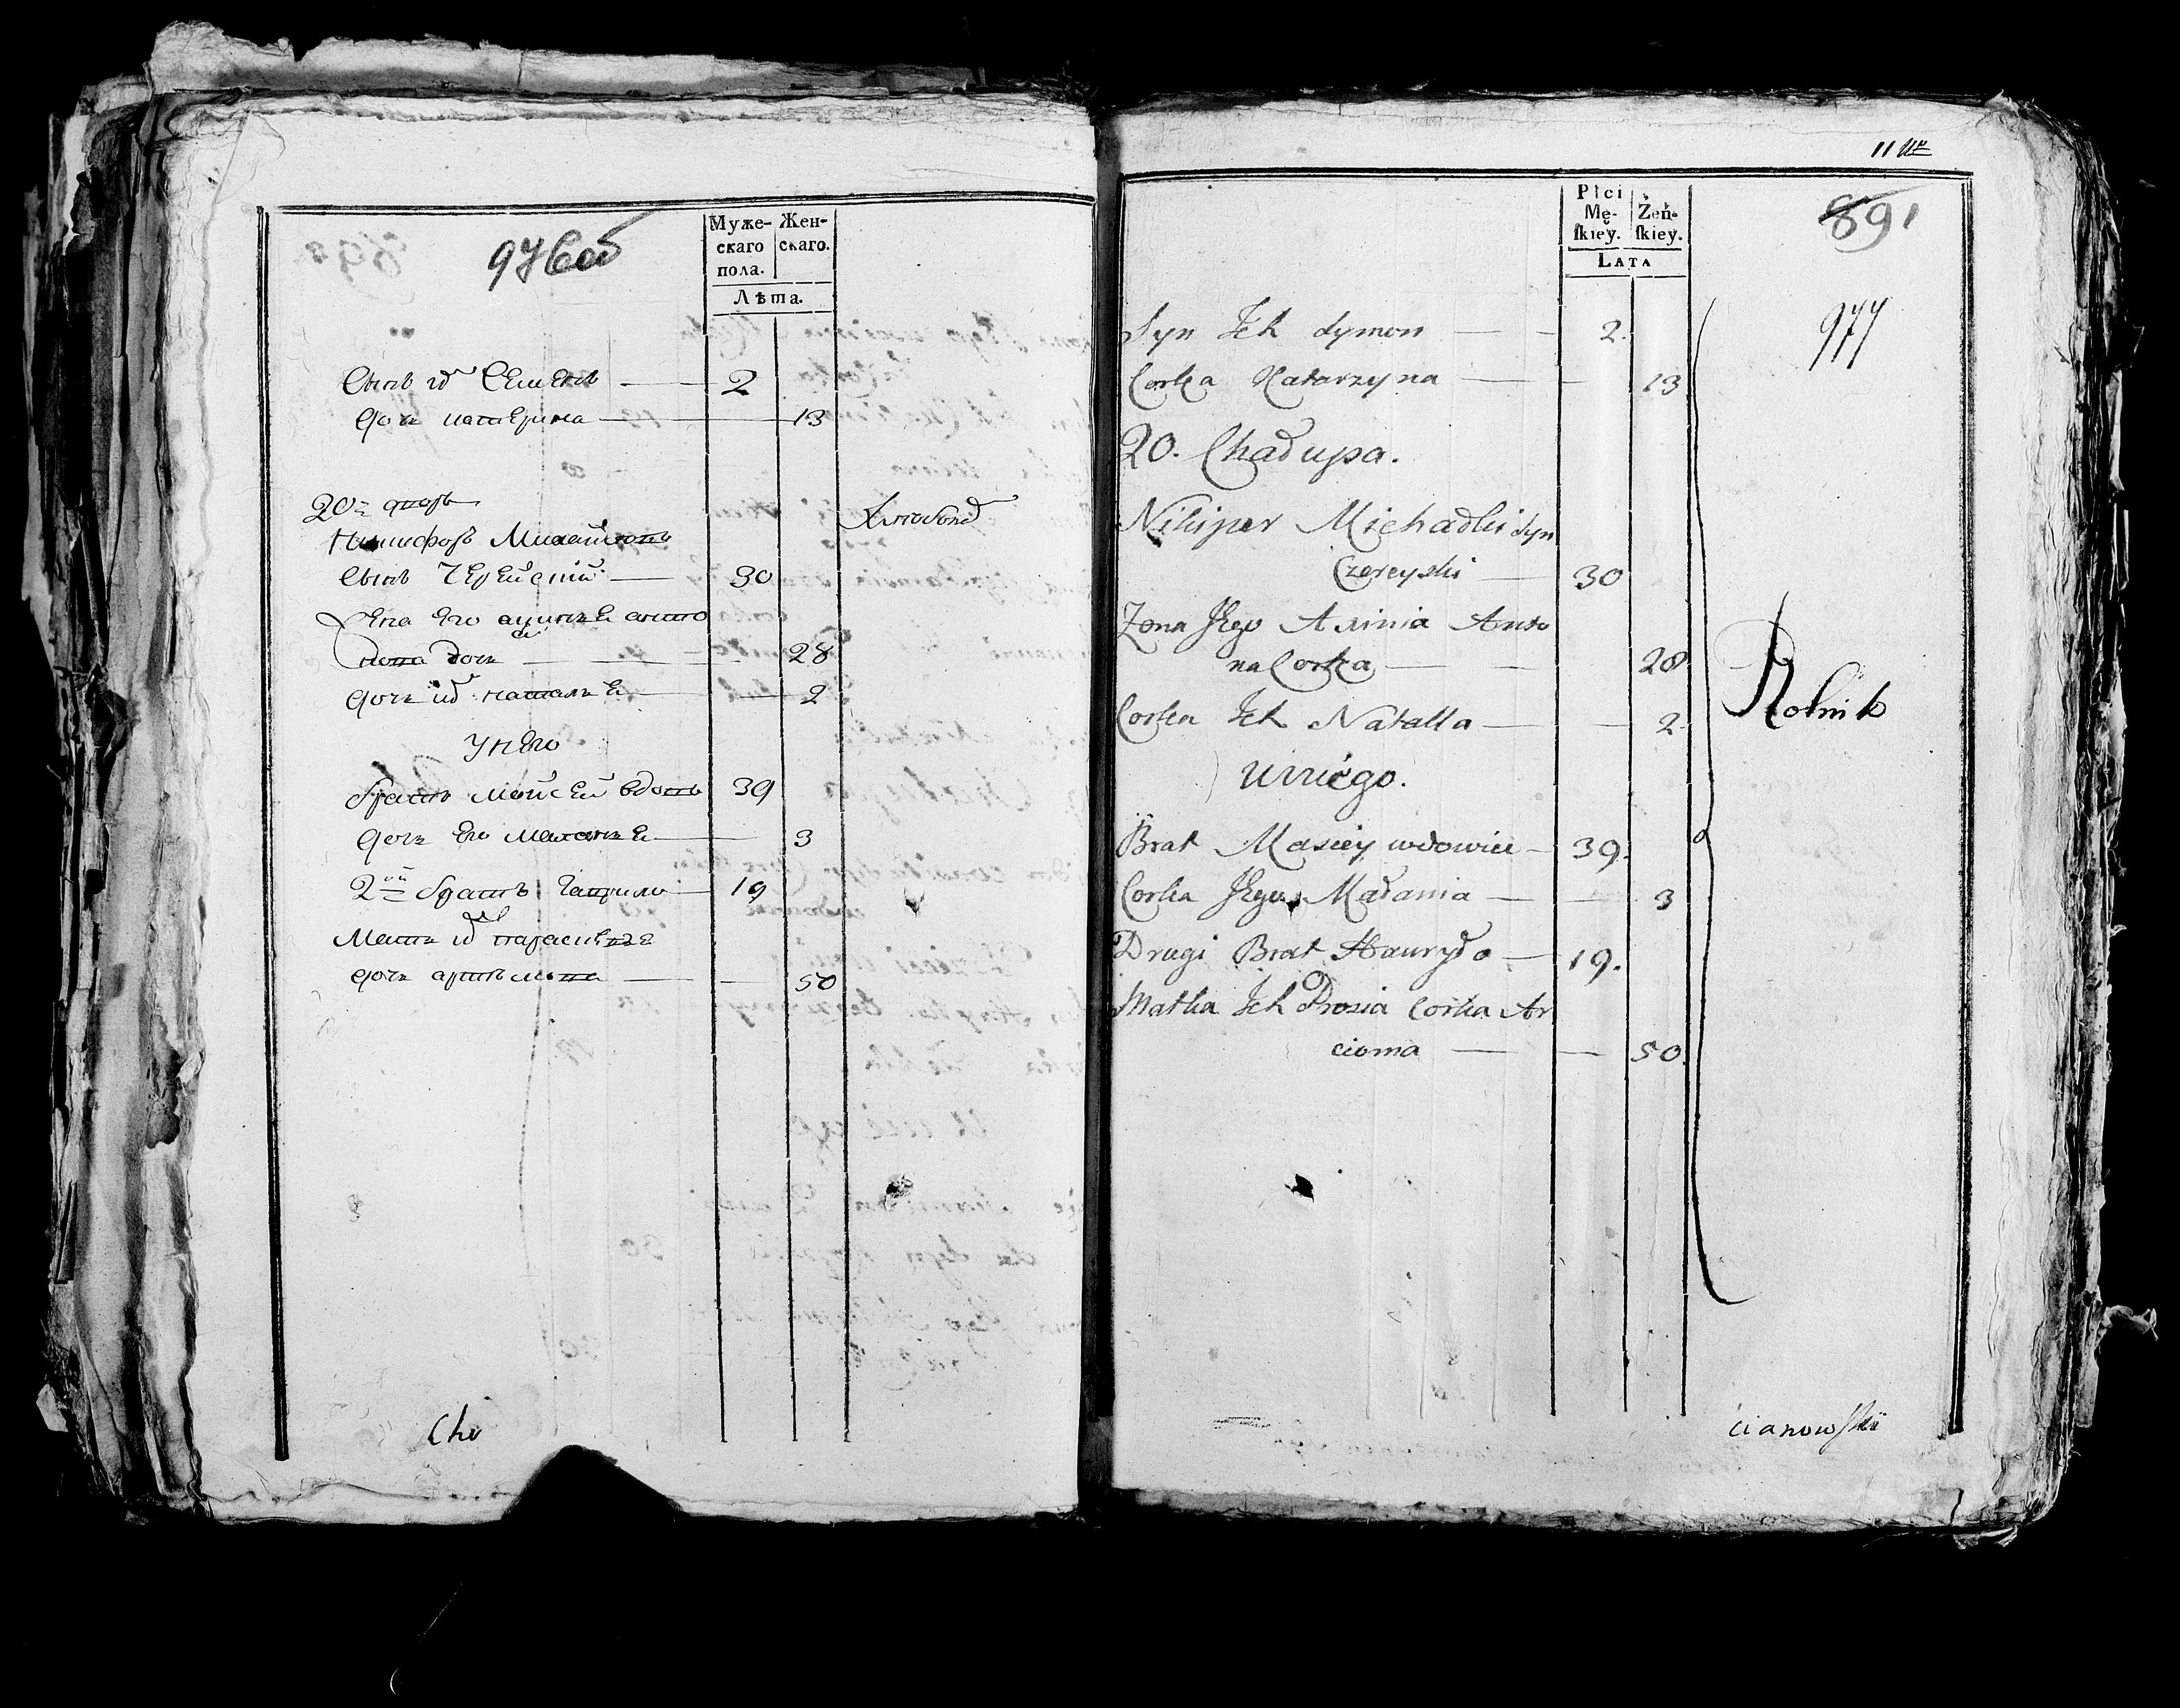 976об
Муже-
скаго
пола.
Жен-
скаго.
Лѣта.
Сынъ их Семенъ — 2
Дочь катерина — 13
20й дворъ
Никифоръ Михайловъ
Сынъ Черейскій — 30
Жена его аѯинье анто
нова дочь — 28
Дочь их наталье — 2
У него
братъ мойсей вдовъ 39
Дочь его маланье — 3
2ой братъ гаврило — 19
Мать их парасковье
дочь артемова — 50
Cho
11 Nr
Płci
Mę-
ſkiey.
Żeń-
ſkiey.
LATA
891
977
Syn Jch Symon — 2.
Corka Katarzyna — 13
20. Chałupa.
Nikiper Michałki Syn
Czereyski — 30
Zona Jego Axinia Anto
na Corka — 28
Corka Jch Natalla — 2.
Rolnik
U niégo.
Brat Masiey wdowiec — 39.
Corka Jego Małania — 3
Drugi Brat Hauryło — 19.
Matka Jch Prosia Corka Ar
cioma — 50.
cianowſki